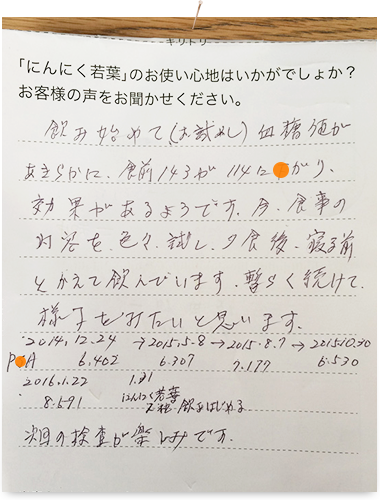 キリトリ
「にんにく若葉」のお使い心地はいかがでしょか？
お客様の声をお聞かせください。
飲み始めて(お試めし)血糖値が
あきらかに、食前143が114に がり、
効果があるようです。今、食事の
対応を、色々、試し、夕食後、寝る前
とかえて飲んでいます。暫らく続けて、
様子をみたいと思います。
2014.12.24 →2015.5.8→2015.8.7→2015.10.30
P A 6.402 6.307 7.177 6.530
2016.1.22 1.31
8.591 にんにく若葉
飲みはじめる
次回の検査が楽しみです。